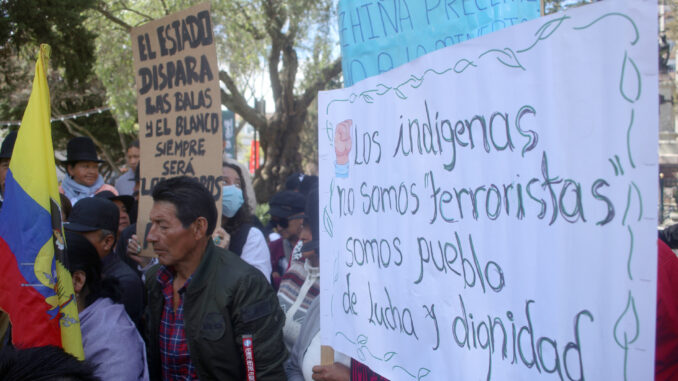 EL ESTADO
DISPARA
LAS BALAS
Y EL BLANCO
SIEMPRE
SERÁ
Los indígenas
no somos "terroristas"
somos pueblo
de lucha y dignidad